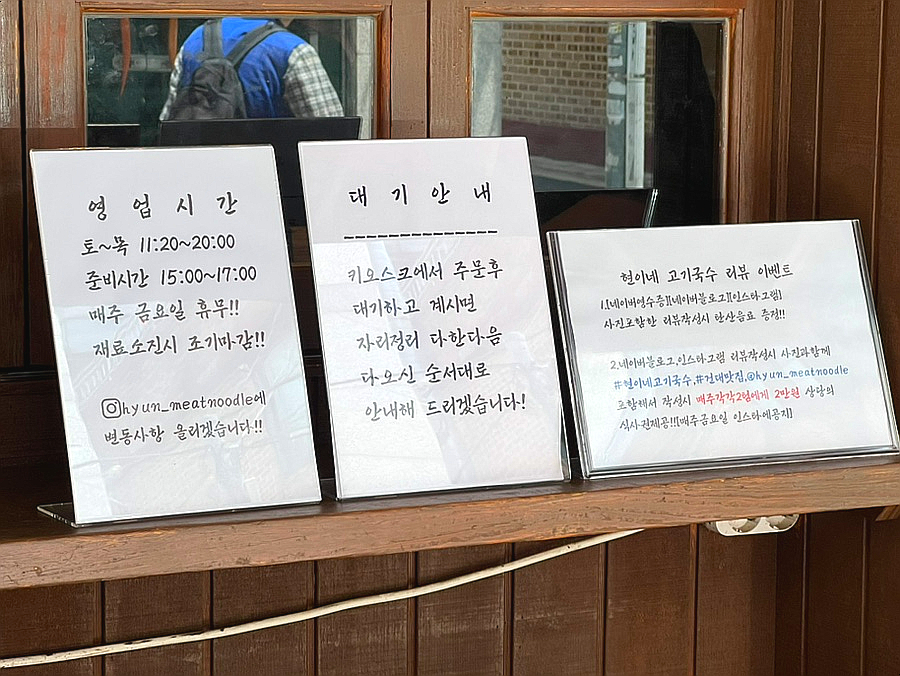 영 업 시 간
토~목 11:20~20:00
준비시간 15:00~17:00
매주 금요일 휴무!!
재료소진시 조기마감!!
hyun_meatnoodle에
변동사항 올리겠습니다!!
대 기 안 내
키오스크에서 주문후
대기하고 계시면
자리정리 다한다음
다오신 순서대로
안내해 드리겠습니다!
현이네 고기국수 리뷰 이벤트
1.[네이버영수증][네이버블로그][인스타그램]
사진포함한 리뷰작성시 탄산음료 증정!!
2.네이버블로그,인스타그램 리뷰작성시 사진과함께
#현이네고기국수,#건대맛집,@hyun_meatnoodle
포함해서 작성시 매주각각2명에게 2만원 상당의
식사권제공!![매주금요일 인스타에공지]